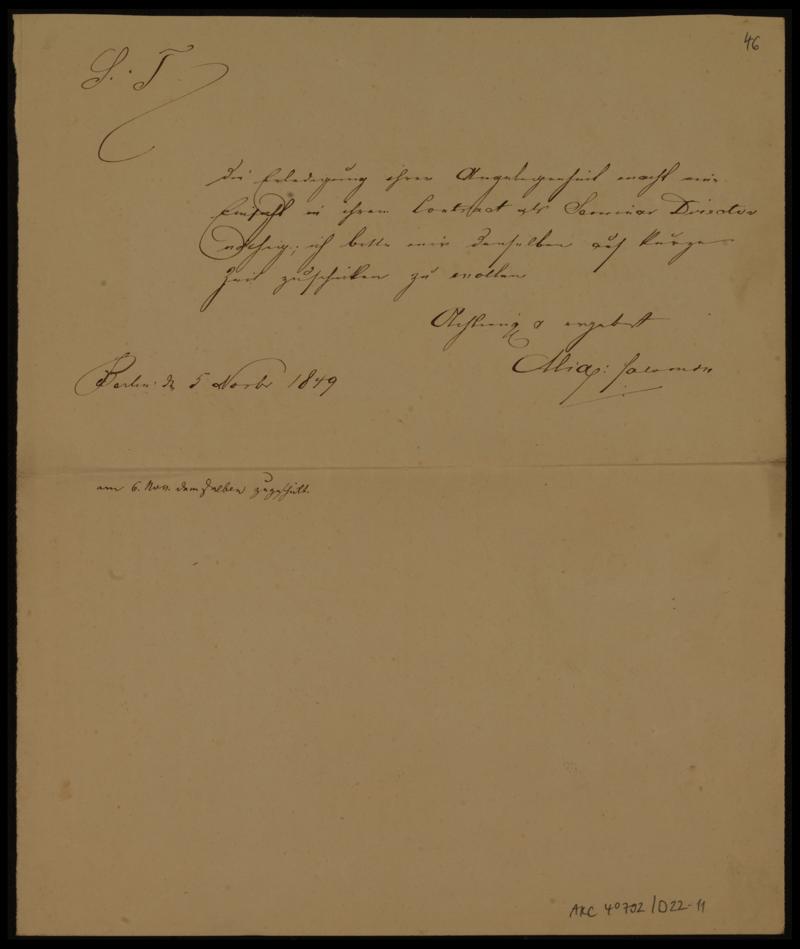 46
S. T
Die Erledigung ihrer Angelegenheit macht eine
Einsicht in ihrem Contract als Seminar Director
nöthig; ich bitte mir denselben auf kurze
Zeit zuschicken zu wollen
Achtung &amp; ergebenst
Salomon
Berlin d 5 Novbr 1849
am 6. Nov. demselben zugeschickt.
ARC 4°792/D22-11